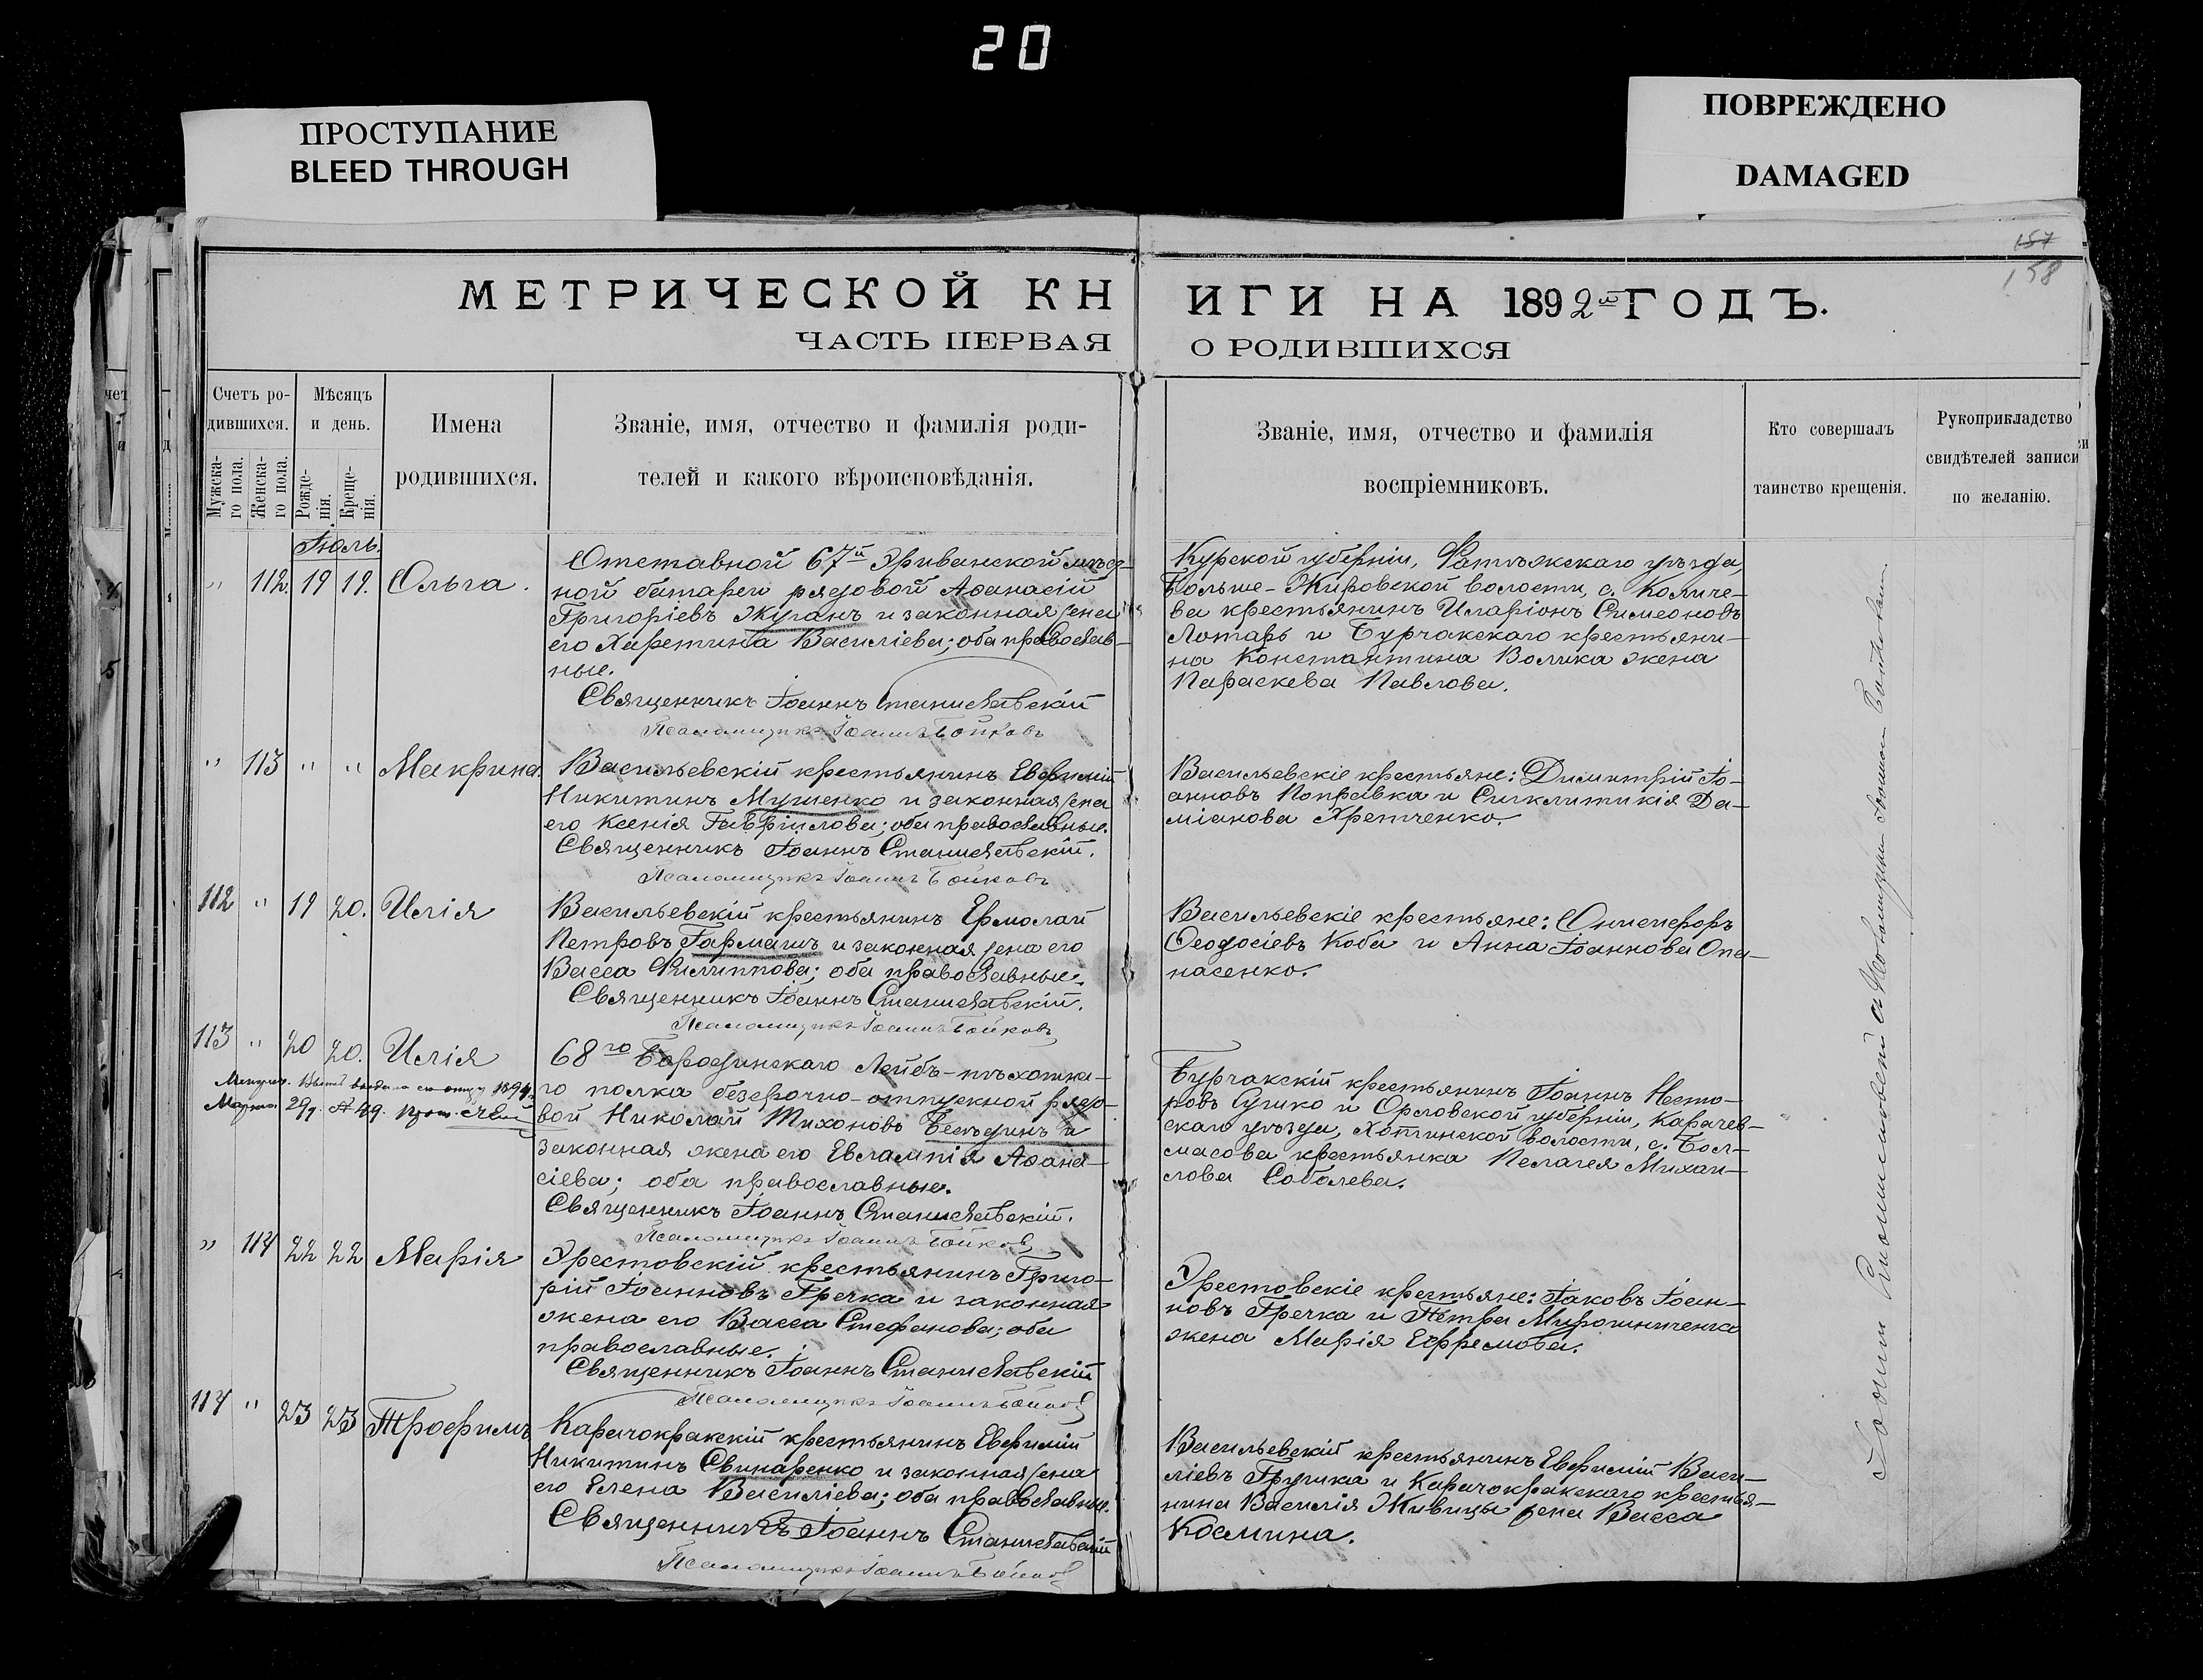 20
ПРОСТУПАНИЕ
BLEED THROUGH
ПОВРЕЖДЕНО
DAMAGED
157
158
МЕТРИЧЕСКОЙ КН
ЧАСТЬ ПЕРВАЯ
ИГИ НА 1892й ГОДЪ.
О РОДИВШИХСЯ
Счетъ ро-
дившихся.
Мужска-
го пола.
Женска-
го пола.
Мѣсяцъ
и день.
Рожде-
нія.
Креще-
нія.
Имена
родившихся.
Званіе, имя, отчество и фамилія роди-
телей и какого вѣроисповѣданія.
Званіе, имя, отчество и фамилія
воспріемниковъ.
Кто совершалъ
таинство крещенія.
Рукоприкладство
свидѣтелей записи
по желанію.
Іюль.
" 112. 19 19. Ольга.
Отставной 67й Эриванской мѣст-
ной батареи рядовой Аѳанасій
Григоріевъ Жуганъ и законная жена
его Харетина Василіева; оба православ-
ные.
Священникъ Іоаннъ Станиславскій
Псаломщикъ Іоаннъ Бойковъ
Курской губерніи, Фатѣжскаго уѣзда,
Больше-Жировской волости, с. Количе-
ва крестьянинъ Иларіонъ Симеоновъ
Лотарь и Бурчакскаго крестьяни-
на Константина Волика жена
Параскева Павлова.
" 113 " " Макрина.
Васильевскій крестьянинъ Евфимій
Никитинъ Мушенко и законная жена
его Ксенія Гавріилова; оба православные.
Священникъ Іоаннъ Станиславскій.
Псаломщикъ Іоаннъ Бойковъ
Васильевскіе крестьяне: Димитрій Іо-
анновъ Поправка и Синклитикія Да-
міанова Хретченко.
112 " 19 20. Илія
Васильевскій крестьянинъ Ермолай
Петровъ Гармашъ и законная жена его
Васса Филиппова; оба православные.
Священникъ Іоаннъ Станиславскій.
Псаломщикъ Іоаннъ Бойковъ
Васильевскіе крестьяне: Онисифоръ
Ѳеодосіевъ Коба и Анна Іоаннова Опа-
насенко.
113 " 20 20. Илія
1894
Марта 29 д. № 29.
68го Бородинскаго Лейбъ-пѣхотна-
го полка безсрочно-отпускной рядо-
вой Николай Тихоновъ Бесѣдинъ и
законная жена его Евлампія Аѳана-
сіева; оба православные.
Священникъ Іоаннъ Станиславскій.
Псаломщикъ Іоаннъ Бойковъ
Бурчакскій крестьянинъ Іоаннъ Несто-
ровъ Сушко и Орловской губерніи, Карачев-
скаго уѣзда, Хотинской волости, с. Бол-
масова крестьянка Пелагея Михаи-
лова Соболева.
" 114 22 22 Марія
Эрестовскій крестьянинъ Григо-
рій Іоанновъ Гречка и законная
жена его Васса Стефанова; оба
православные.
Священникъ Іоаннъ Станиславскій
Псаломщикъ Іоаннъ Бойковъ
Эрестовскіе крестьяне: Іаковъ Іоан-
новъ Гречка и Петра Мирошниченка
жена Марія Ефремова.
114 " 23 23 Трофимъ
Карачокракскій крестьянинъ Евфимій
Никитинъ Свинаренко и законная жена
его Елена Василіева; оба православные.
Священникъ Іоаннъ Станиславскій
Псаломщикъ Іоаннъ Бойковъ
Васильевскій крестьянинъ Евфимій Васи-
ліевъ Грушка и Карачокракскаго крестья-
нина Василія Живицы жена Васса
Космина.